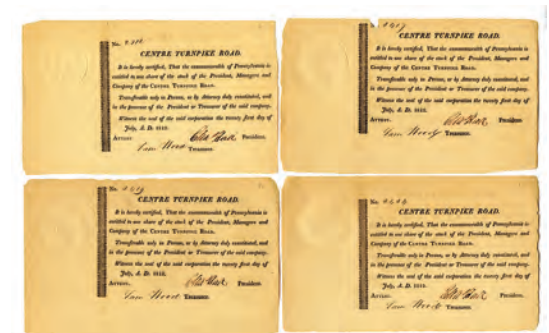 No.
CENTRE TURNPIKE ROAD.
It is hereby certified, That the commonwealth of Pennsylvania is
entitled to one share of the stock of the President, Managers and
Company of the CENTRE TURNPIKE ROAD.
Transferable only in Person, or by Attorney duly constituted, and
in the presence of the President or Treasurer of the said company.
Witness the seal of the said corporation the twenty first day of
July, A. D.
ATTEST. President.
Treasurer.
No.
CENTRE TURNPIKE ROAD.
It is hereby certified, That the commonwealth of Pennsylvania is
entitled to one share of the stock of the President, Managers and
Company of the CENTRE TURNPIKE ROAD.
Transferable only in Person, or by Attorney duly constituted, and
in the presence of the President or Treasurer of the said company.
Witness the seal of the said corporation the twenty first day of
July, A. D.
ATTEST. President.
Treasurer.
No.
CENTRE TURNPIKE ROAD.
It is hereby certified, That the commonwealth of Pennsylvania is
entitled to one share of the stock of the President, Managers and
Company of the CENTRE TURNPIKE ROAD.
Transferable only in Person, or by Attorney duly constituted, and
in the presence of the President or Treasurer of the said company.
Witness the seal of the said corporation the twenty first day of
July, A. D.
ATTEST. President.
Treasurer.
No.
CENTRE TURNPIKE ROAD.
It is hereby certified, That the commonwealth of Pennsylvania is
entitled to one share of the stock of the President, Managers and
Company of the CENTRE TURNPIKE ROAD.
Transferable only in Person, or by Attorney duly constituted, and
in the presence of the President or Treasurer of the said company.
Witness the seal of the said corporation the twenty first day of
July, A. D.
ATTEST. President.
Treasurer.